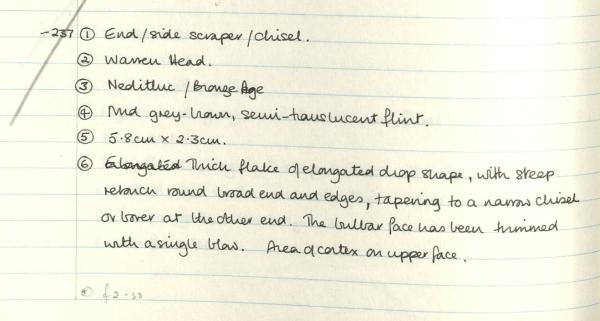 -237 ① End/side scraper/chisel.
② Warren Head.
③ Neolithic / Bronze Age
④ Mid grey-brown, semi-translucent flint.
⑤ 5.8cm x 2.3cm.
⑥ Elongated Thick flake of elongated drop shape, with steep
retouch round broad end and edges, tapering to a narrow chisel
or borer at the other end. The bulbar face has been trimmed
with a single blow. Area of cortex on upper face.
£2-50